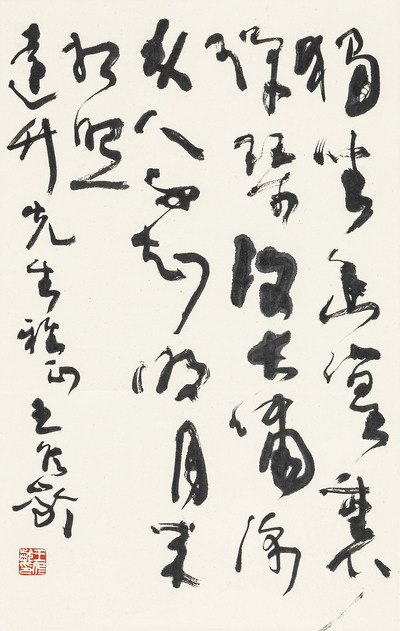 獨坐幽篁裏
彈琴復長嘯深
林人不知明月來
相照
達升先生雅正 王冬齡
王冬齡